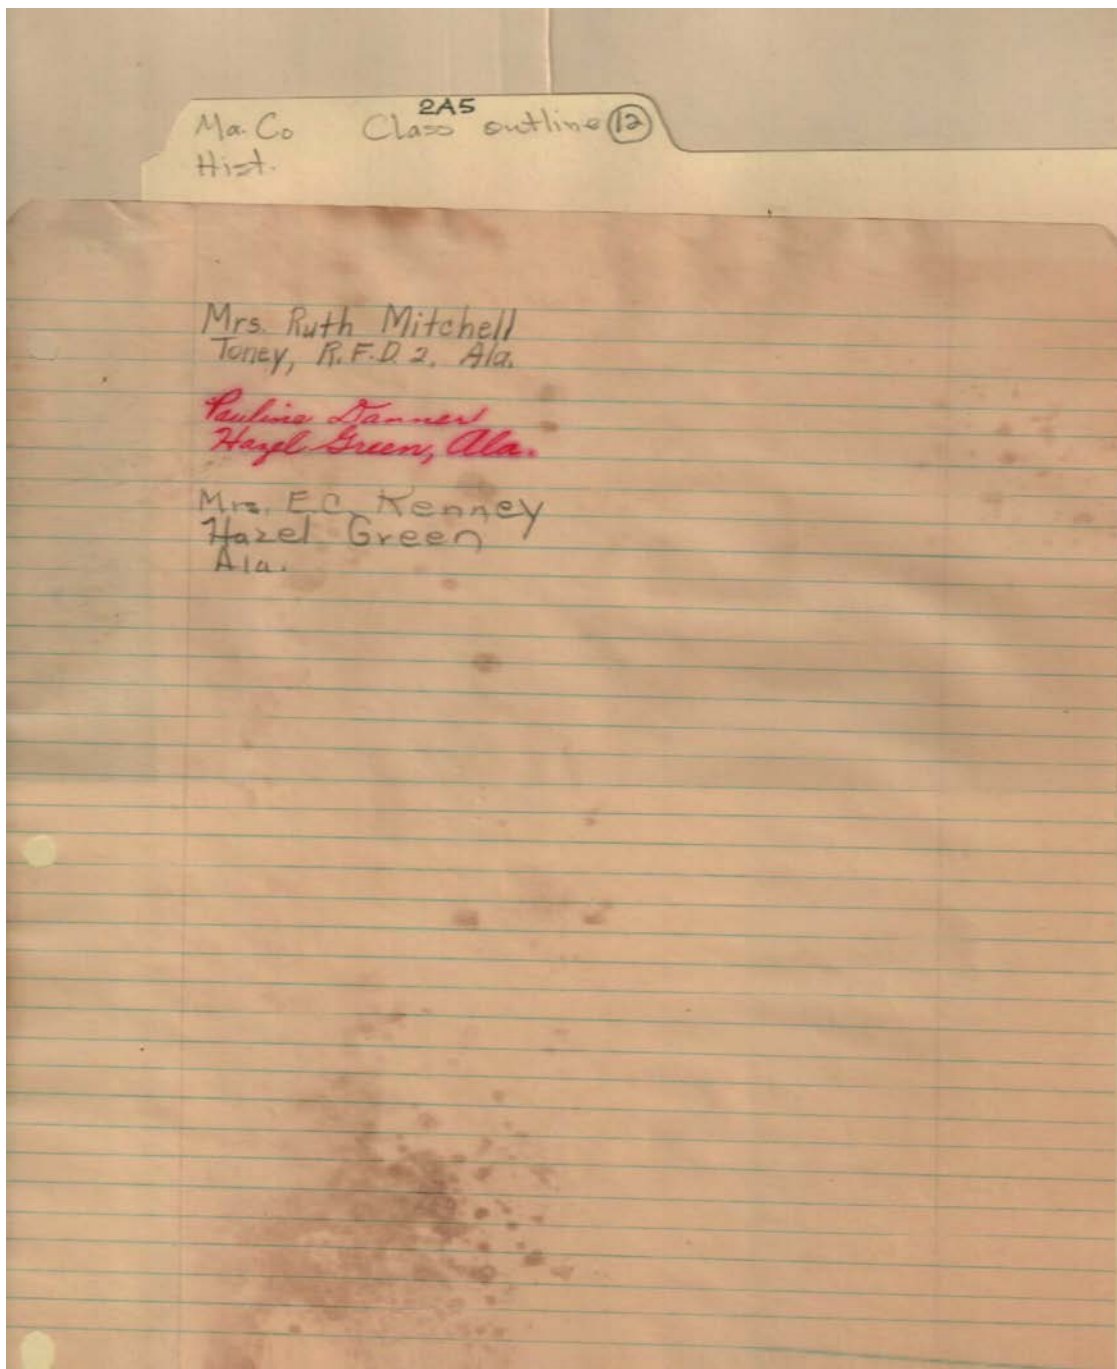 2A5
Ma. Co Class outline 12
Hist.
Mrs. Ruth Mitchell
Toney, R.F.D. 2. Ala.
Pauline Danner
Hazel Green, Ala.
Mrs. E.C. Kenney
Hazel Green
Ala.